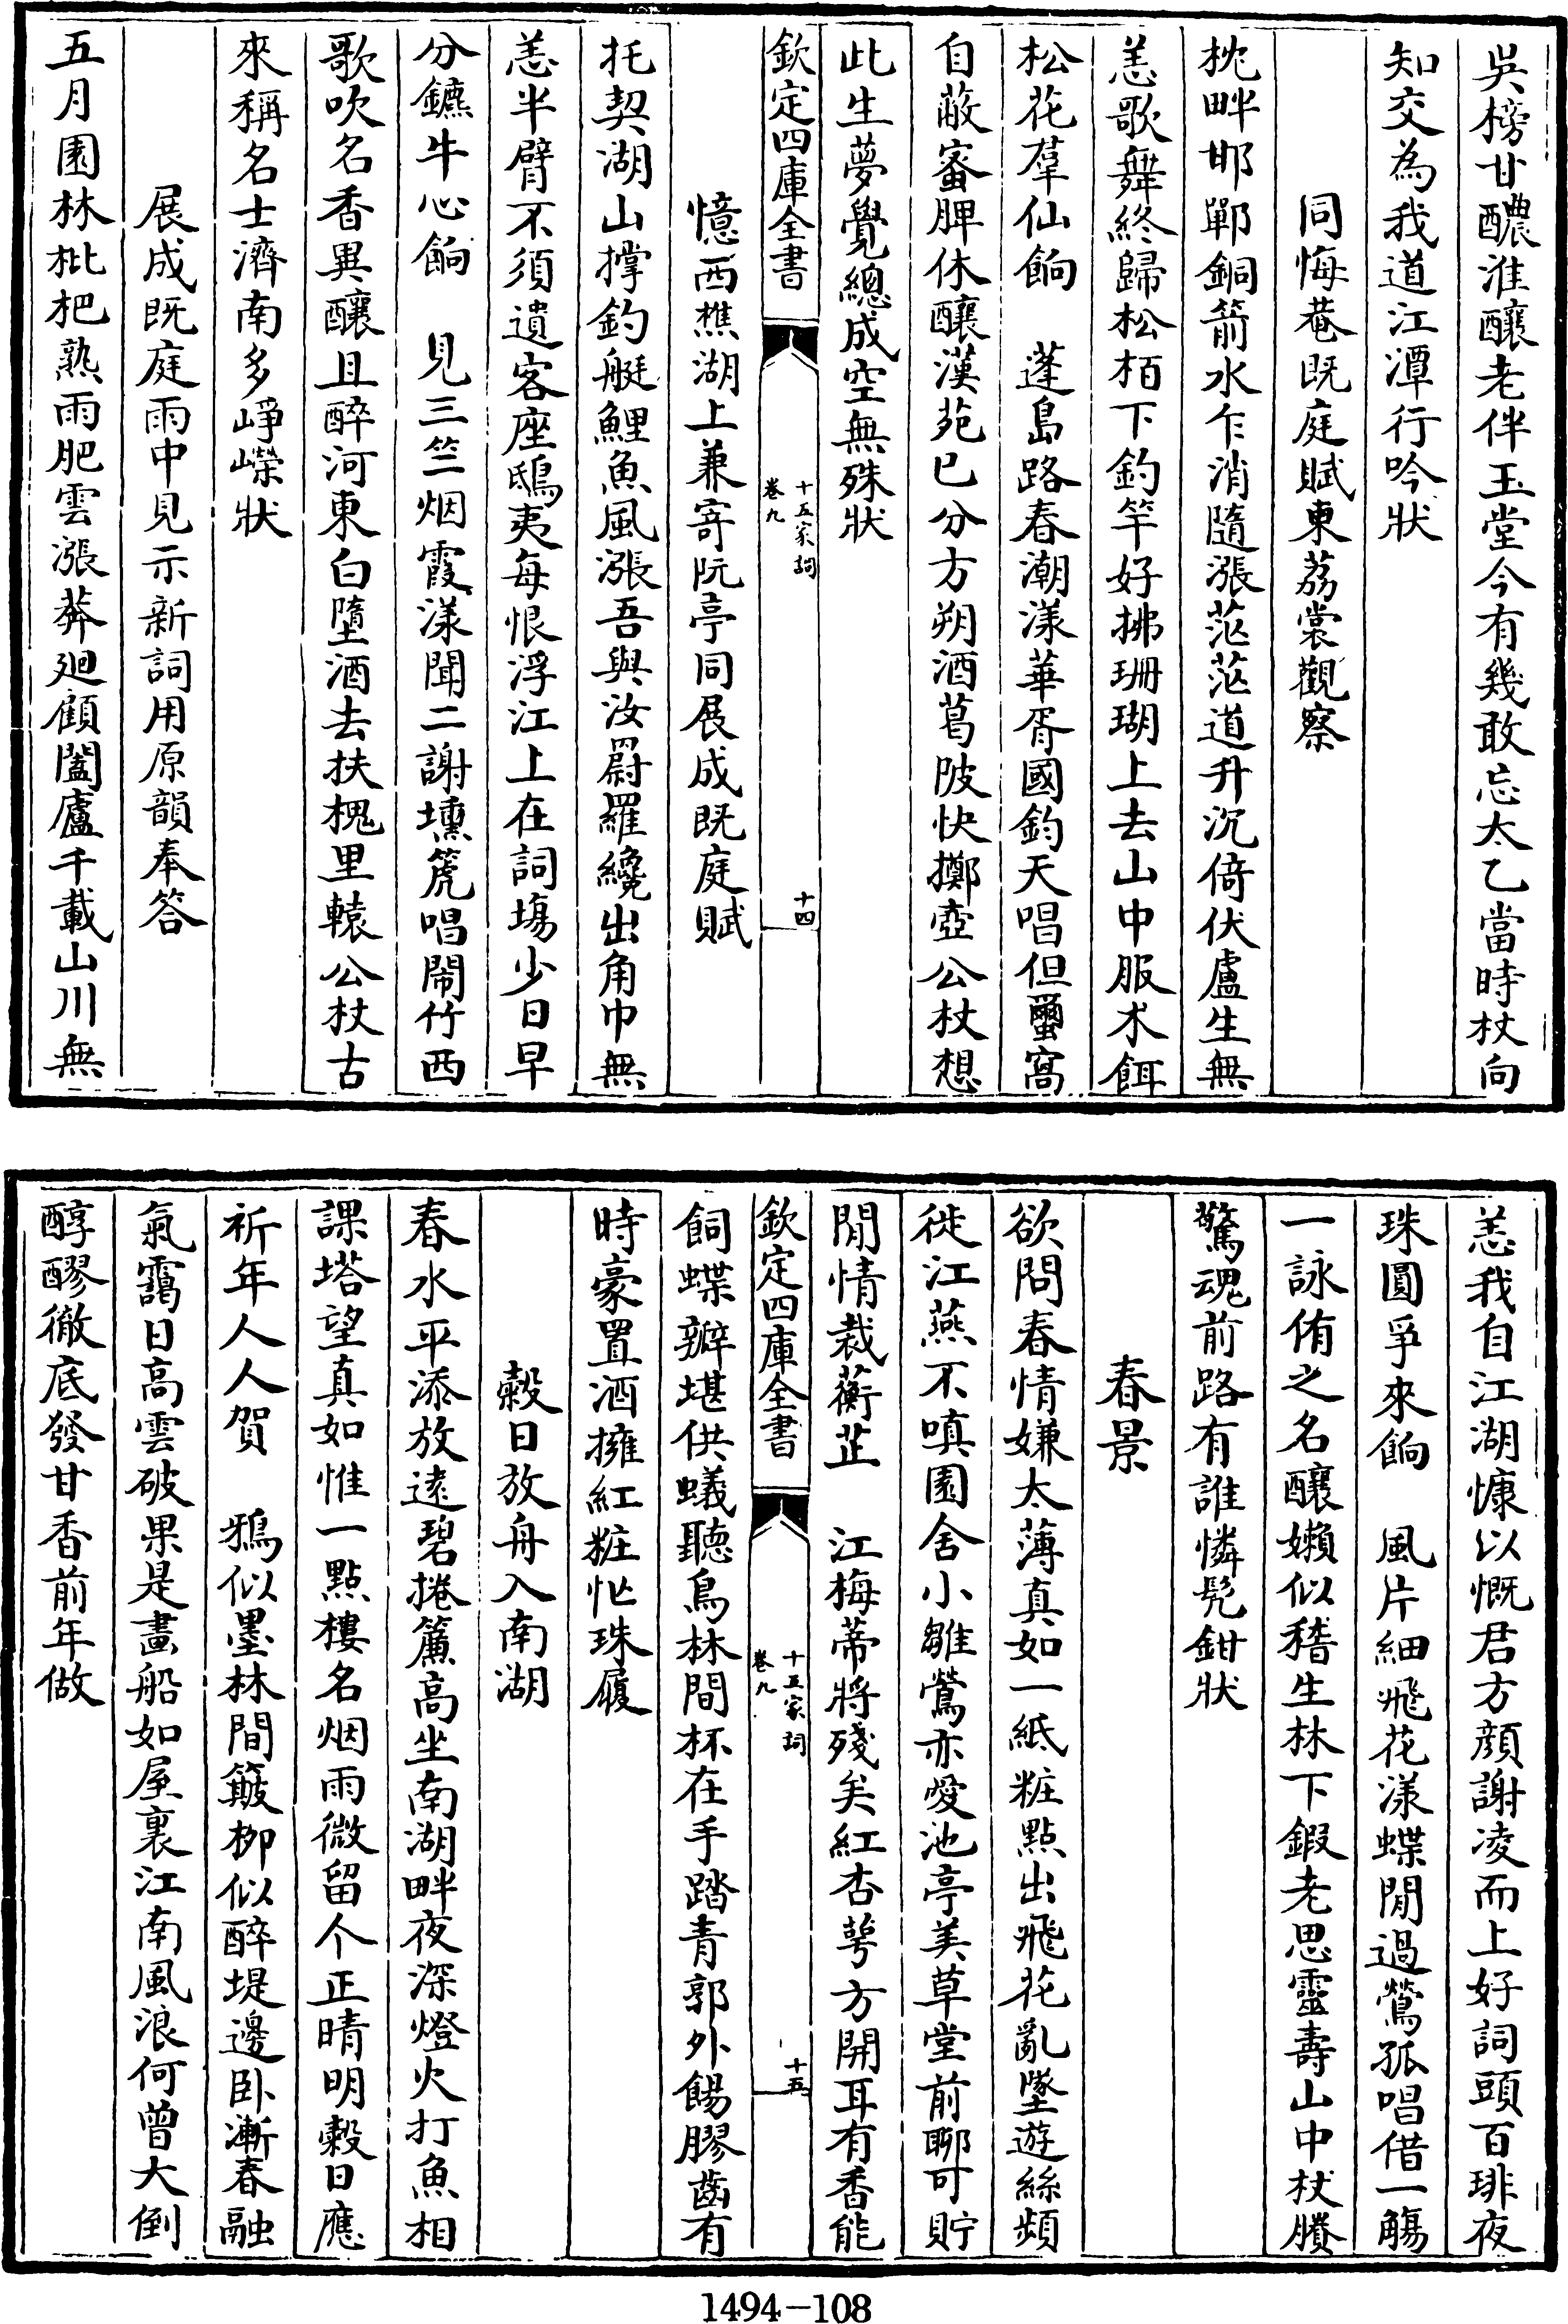 吳榜甘醲淮釀老伴玉堂今有幾敢忘太乙當時杖向
知交為我道江潭行吟狀
同悔菴既庭賦東荔裳觀察
枕畔邯鄲銅箭水乍消隨漲茫茫道升沉倚伏盧生無
恙歌舞終歸松栢下釣竿好拂珊瑚上去山中服朮餌
松花羣仙餉　蓬島路春潮漾華胥國鈞天唱但蠒窩
自蔽蜜脾休釀漢苑已分方朔酒葛陂快擲壺公杖想
此生夢覺總成空無殊狀
欽定四庫全書
十五家詞
卷九
十四
憶西樵湖上兼寄阮亭同展成既庭賦
托契湖山撐釣艇鯉魚風漲吾與汝罻羅纔出角巾無
恙半臂不須遺客座鴟夷每恨浮江上在詞場少日早
分鑣牛心餉　見三竺烟霞漾聞二謝壎箎唱鬧竹西
歌吹名香異釀且醉河東白墮酒去扶槐里轅公杖古
來稱名士濟南多崢嶸狀
展成既庭雨中見示新詞用原韻奉答
五月園林枇杷熟雨肥雲漲莽廻顧闔廬千載山川無
恙我自江湖慷以慨君方顔謝凌而上好詞頭百琲夜
珠圓爭來餉　風片細飛花漾蝶閒過鶯孤唱借一觴
一詠侑之名釀嬾似稽生林下鍜老思靈壽山中杖賸
驚魂前路有誰憐髡鉗狀
春景
欲問春情嫌太薄真如一紙粧點出飛花亂墜遊絲頻
徙江燕不嗔園舍小雛鶯亦愛池亭美草堂前聊可貯
閒情裁蘅芷　江梅蒂將殘矣紅杏萼方開耳有香能
欽定四庫全書
十五家詞
卷九
十五
飼蝶瓣堪供蟻聽鳥林間杯在手踏青郭外餳膠齒有
時豪置酒擁紅粧忙珠履
穀日放舟入南湖
春水平添放逺碧捲簾高坐南湖畔夜深燈火打魚相
課塔望真如惟一點樓名烟雨微留个正晴明穀日應
祈年人人賀　鴉似墨林間簸柳似醉堤邊卧漸春融
氣靄日高雲破果是畫船如屋裏江南風浪何曾大倒
醇醪徹底發甘香前年做
1494—108